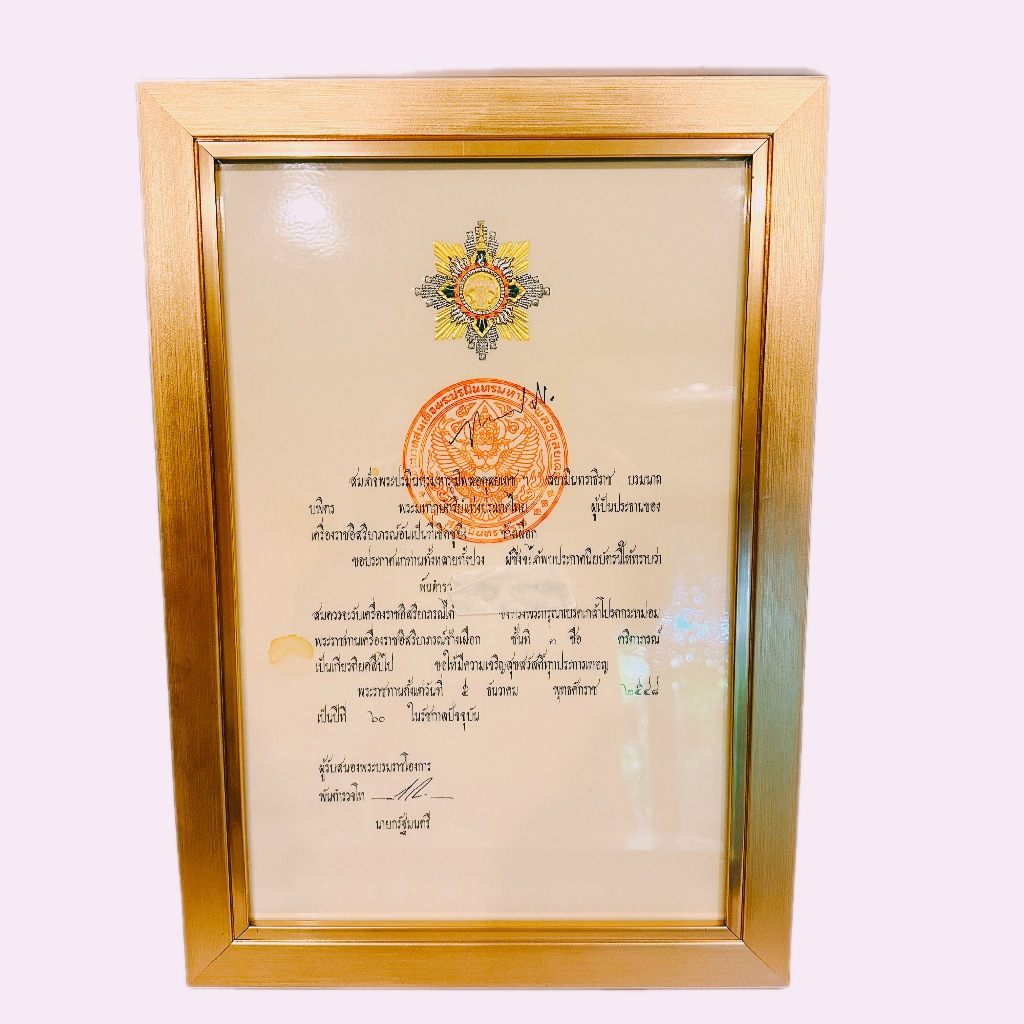 สมเด็จพระปรมินทรมหาภูมิพลอดุลยเดช ฯ สยามินทราธิราช บรมนาถ
บพิตร พระมหากษัตริย์แห่งประเทศไทย ผู้เป็นประธานของ
เครื่องราชอิสริยาภรณ์อันเป็นที่เชิดชูยิ่ง ช้างเผือก
ขอประกาศแก่ท่านทั้งหลายทั้งปวง ผู้ซึ่งจะได้พบประกาศนียบัตรนี้ให้ทราบว่า
พันตำรว
สมควรจะรับเครื่องราชอิสริยาภรณ์ได้ ซึ่งทรงพระกรุณาโปรดเกล้าโปรดกระหม่อม
พระราชทานเครื่องราชอิสริยาภรณ์ช้างเผือก ชั้นที่ ๓ ชื่อ ตริตาภรณ์
เป็นเกียรติยศสืบไป ขอให้มีความเจริญสุขสวัสดิ์ทุกประการเทอญ
พระราชทานตั้งแต่วันที่ ๕ ธันวาคม พุทธศักราช ๒๕๔๘
เป็นปีที่ ๖๐ ในรัชกาลปัจจุบัน
ผู้รับสนองพระบรมราชโองการ
พันตำรวจโท
นายกรัฐมนตรี